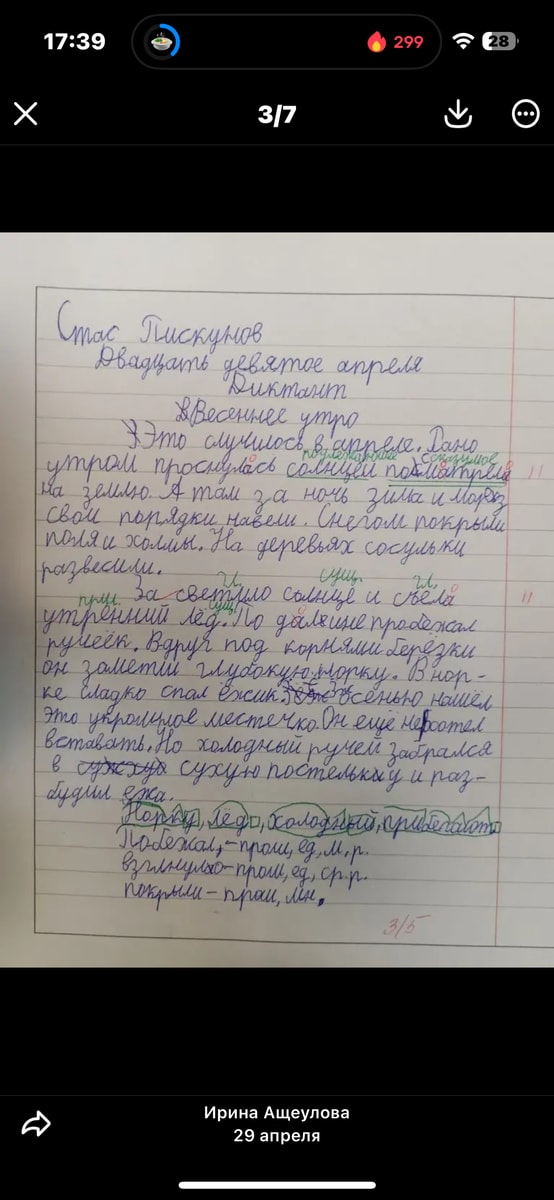 17:39
299
28
3/7
Стас Пискунов
Двадцать девятое апреля
Диктант
Весеннее утро
Это случилось в апреле. Рано
подлежающее сказуемое
утром проснулась солнцей посматрела
на землю. А там за ночь зима и мороз
свои порядки навели. Снегом покрыли
поля и холмы. На деревьях сосульки
развесили.
гл. сущ. гл.
За светило солнце и съела
прил. сущ.
утренний лёд. По далине пробежал
ручеёк. Вдруг под корнями берёзки
он заметил глубокую норку. В нор-
ке сладко спал ёжик. осенью нашёл
это укромное местечко. Он еще не хотел
вставать. Но холодный ручей забрался
в сухую постельку и раз-
будил ежа.
Норку, лёд, холодный, прибегают
Побежал, - прош, ед, м, р.
взглянуло - прош, ед, ср. р.
покрыли - прош, мн.
3/5
Ирина Ащеулова
29 апреля